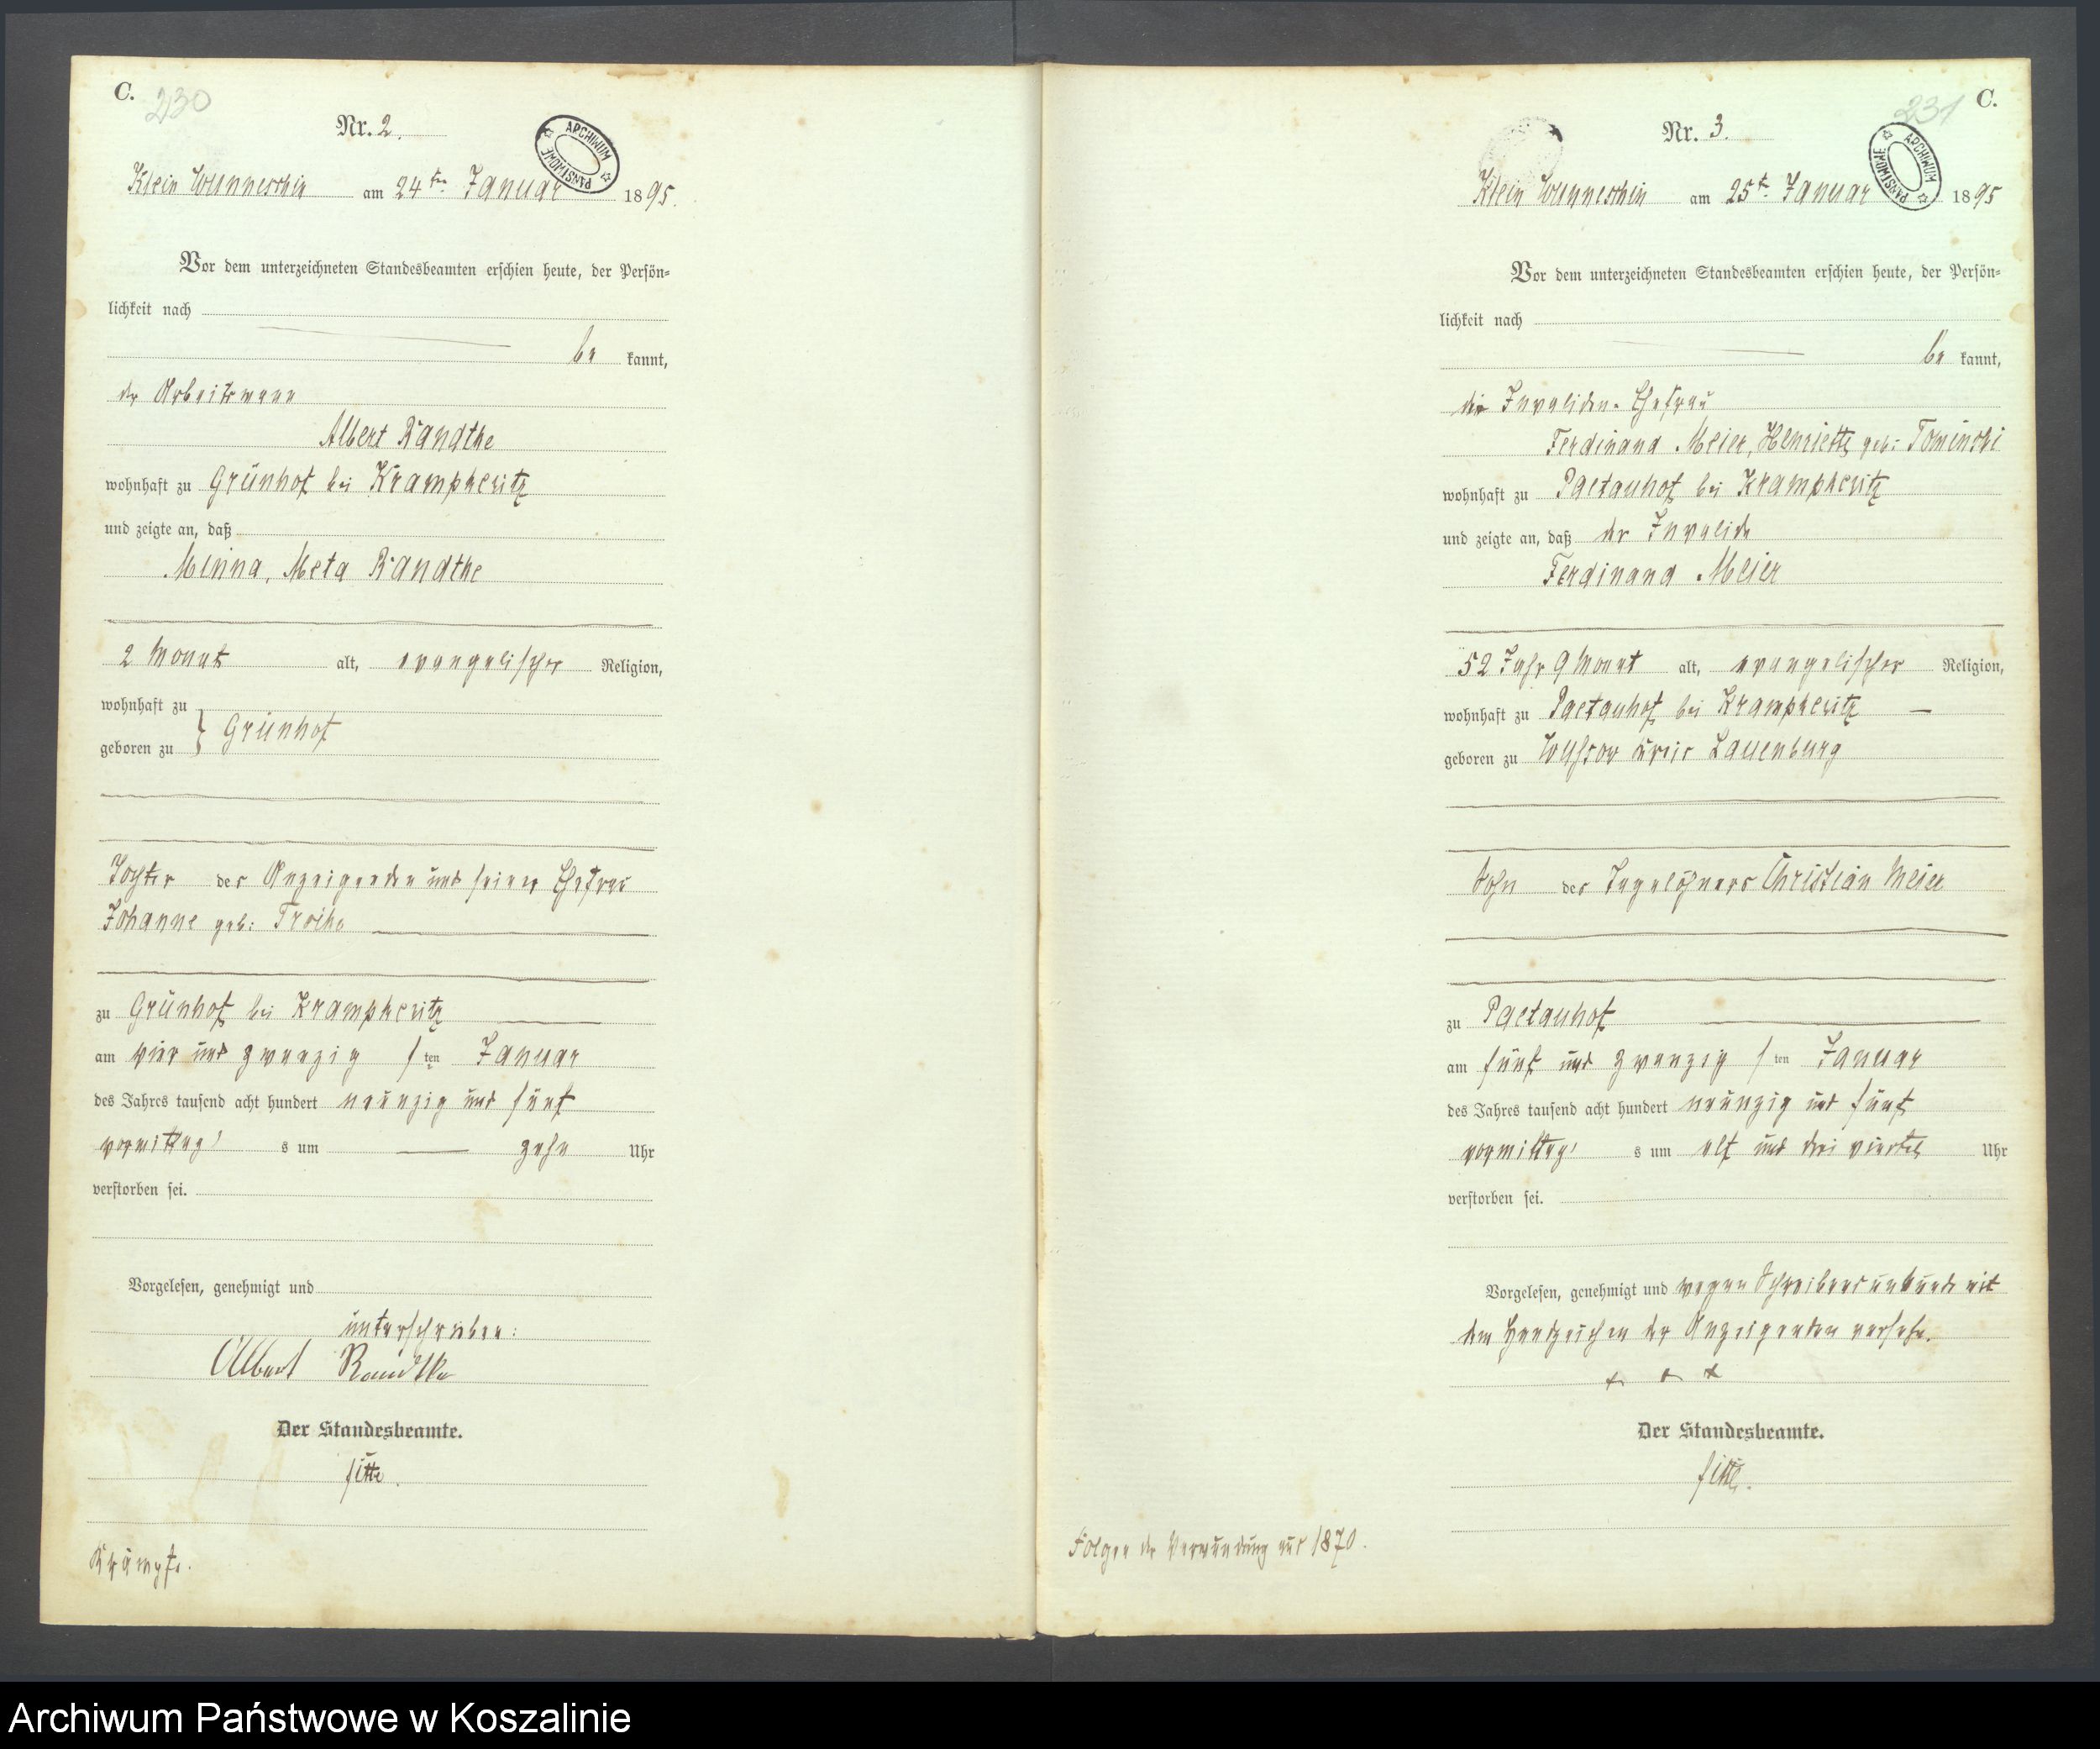 C.
230
Nr. 2.
ARCHIWUM PAŃSTWOWE
Klein Wunneschin am 24ten Januar 1895.
Vor dem unterzeichneten Standesbeamten erschien heute, der Persön=
lichkeit nach
be kannt,
der Arbeitsmann
Albert Randthe
wohnhaft zu Grünhof bei Krampkewitz
und zeigte an, daß
Minna, Meta Randthe
2 Monat alt, evangelischer Religion,
wohnhaft zu
geboren zu } Grünhof
Tochter des Anzeigenden und seiner Ehefrau
Johanne geb:
zu Grünhof bei Krampkewitz
am vier und zwanzig sten Januar
des Jahres tausend acht hundert neunzig und fünf
vormittag s um zehn Uhr
verstorben sei.
Vorgelesen, genehmigt und
unterschrieben:
Albert Randtke
Der Standesbeamte.
Krämpfe.
231
C.
Nr. 3.
ARCHIWUM PAŃSTWOWE
Klein Wunneschin am 25t. Januar 1895
Vor dem unterzeichneten Standesbeamten erschien heute, der Persön=
lichkeit nach
be kannt,
die Invaliden-Ehefrau
Ferdinand Meier, Henriette geb: Tominski
wohnhaft zu bei Krampkewitz
und zeigte an, daß der Invalide
Ferdinand Meier
52 Jahr 9 Monat alt, evangelischer Religion,
wohnhaft zu bei Krampkewitz
geboren zu Wussow Kreis Lauenburg
Sohn des Tagelöhners Christian Meier
zu
am fünf und zwanzig sten Januar
des Jahres tausend acht hundert neunzig und fünf
vormittag s um elf und drei viertel Uhr
verstorben sei.
Vorgelesen, genehmigt und wegen Schreibensunkunde mit
dem Handzeichen der Anzeigenden versehn.
+ + +
Der Standesbeamte.
Folgen der Verwundung aus 1870.
Archiwum Państwowe w Koszalinie